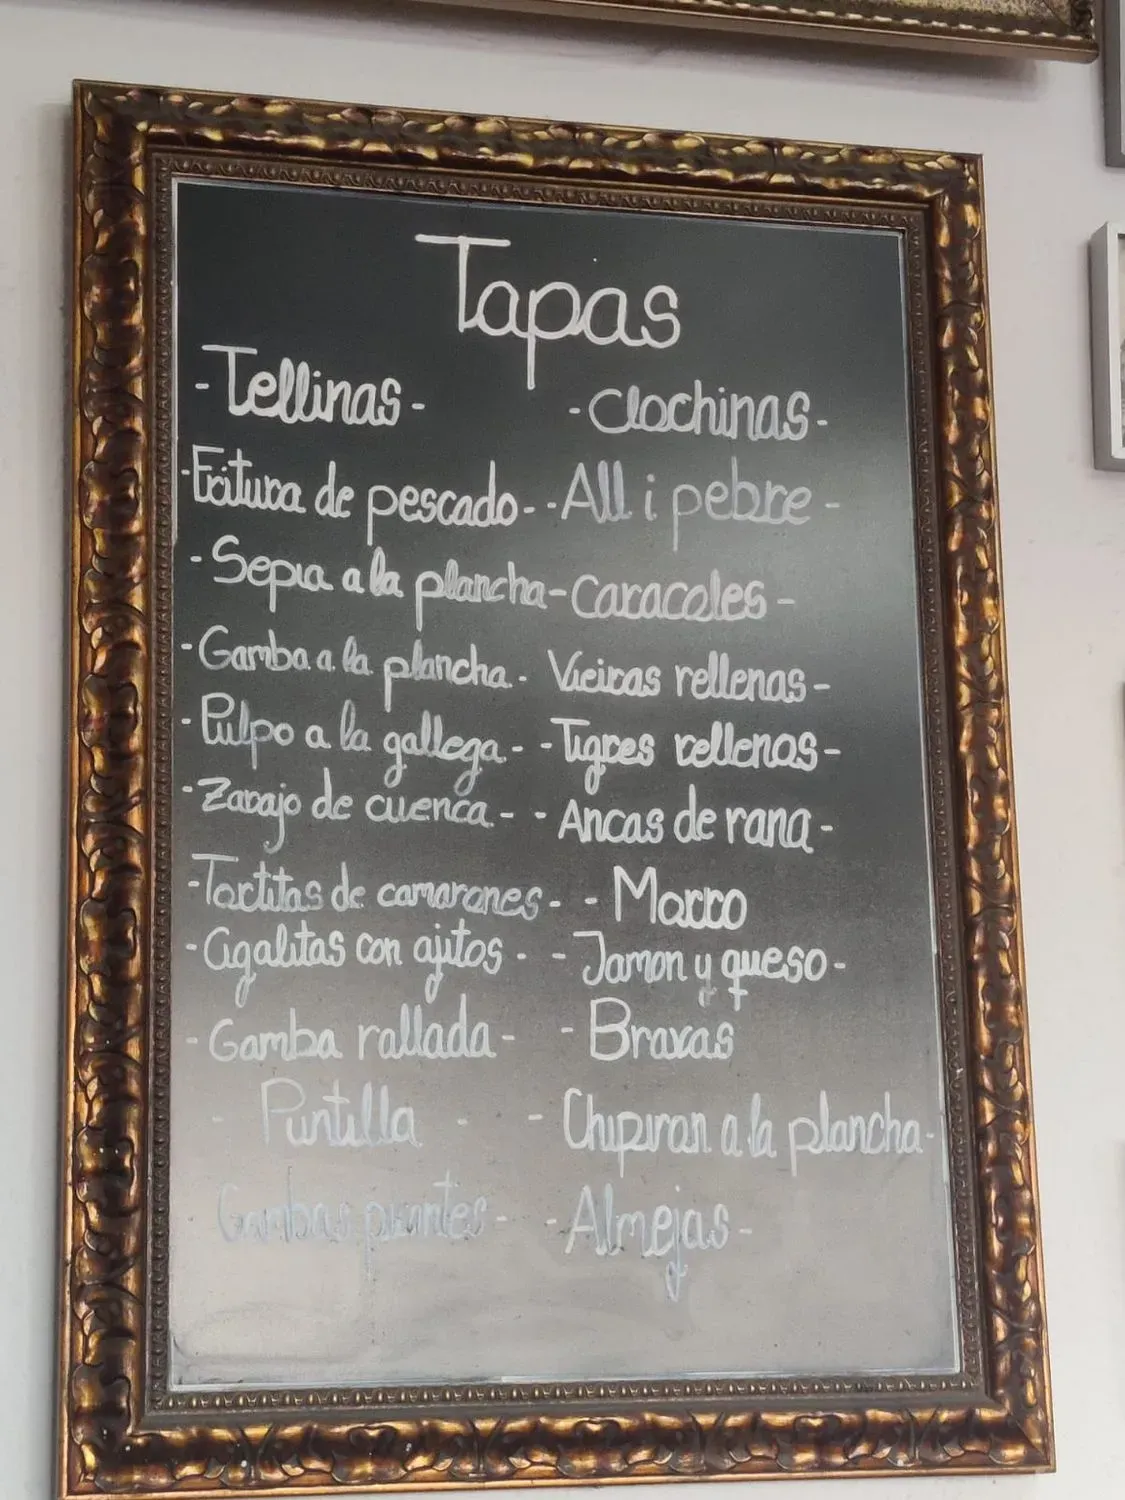 Tapas
-Tellinas-
-Clochinas-
-Fritura de pescado-
-All i pebre-
-Sepia a la plancha-
Caracoles-
-Gamba a la plancha-
Vieiras rellenas-
-Pulpo a la gallega-
-Tigres rellenos-
-Zarajo de cuenca-
-Ancas de rana-
-Tortitas de camarones-
-Morro
-Cigalitas con ajitos-
-Jamon y queso-
-Gamba rallada-
-Bravas
-Puntilla-
-Chipiron a la plancha-
Gambas picantes-
-Almejas-